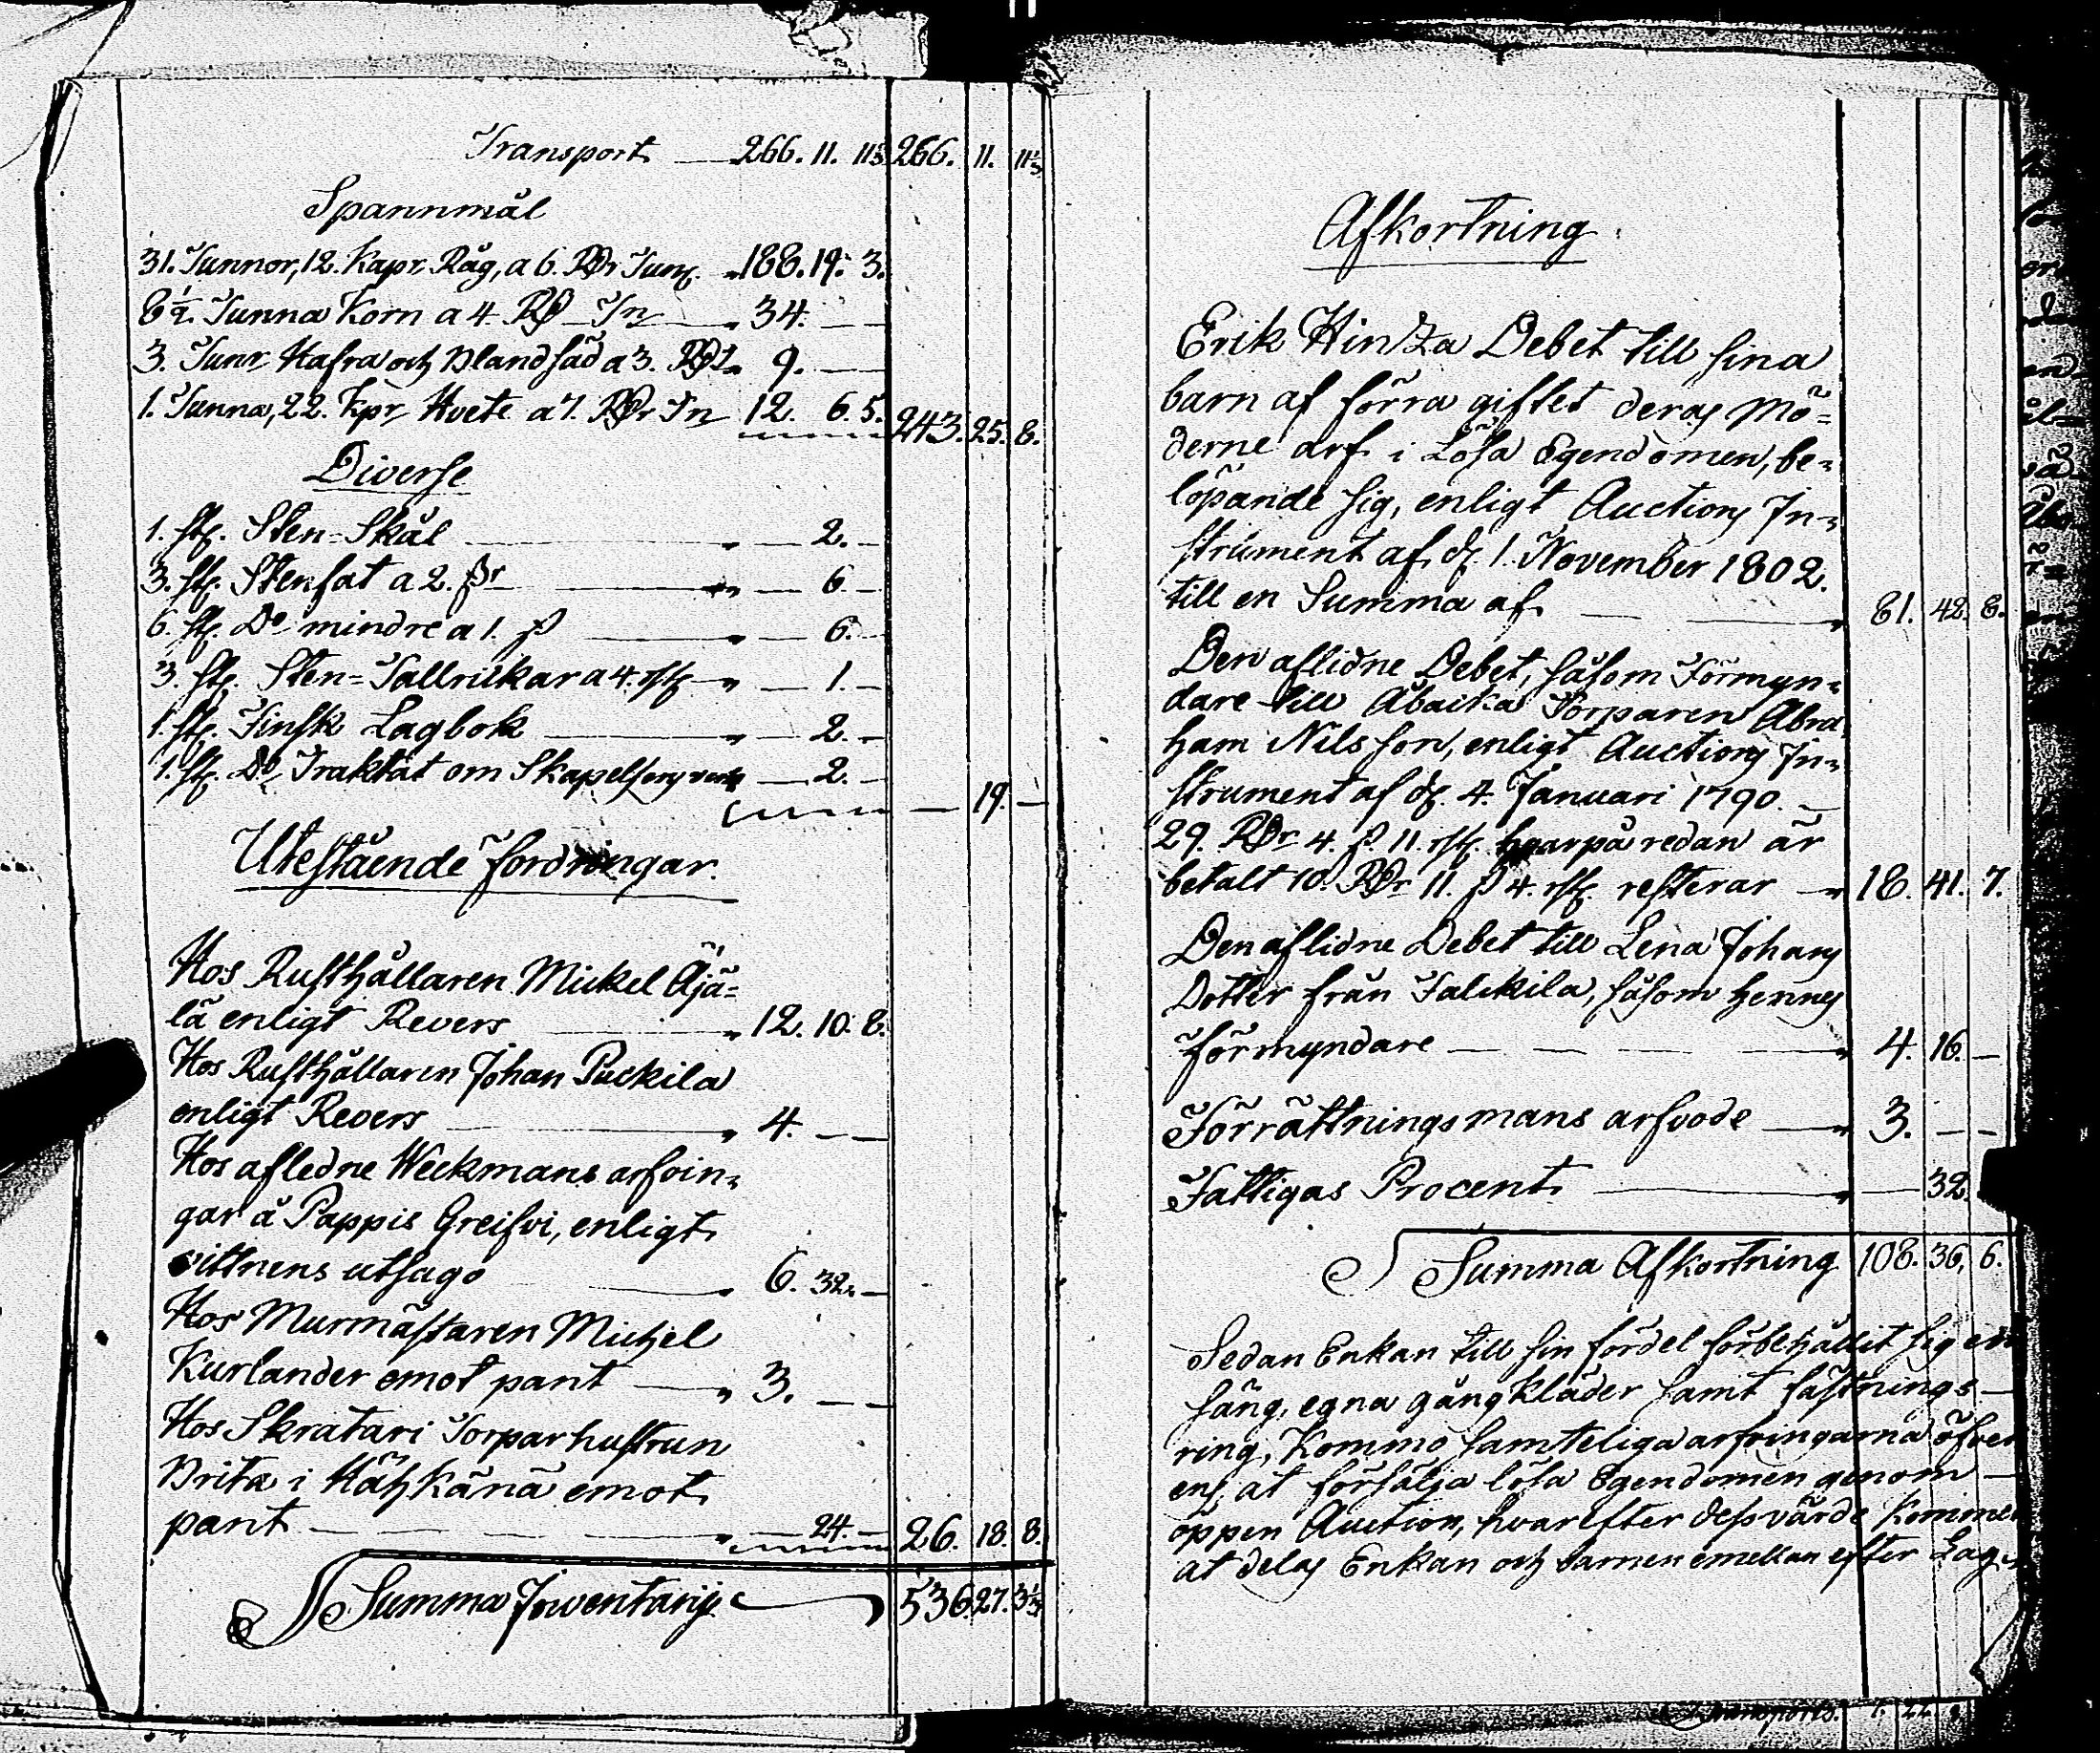 Transport 266. 11. 11⅓ 266. 11. 11⅓
Spannmål
31. Tunnor, 12. Kapr. Råg, a 6. RDr Tunn. " 188. 19. 3.
8½. Tunna Korn a 4. RD Tn " 34. — —
3. Tunr Hafra och Blandsäd a 3. RDr " 9. —
1. Tunna, 22. Kpr Hvete a 7. RDr Tn 12. 6. 5. 243. 25. 8.
Diverse
1. st. Sten-Skål " — 2. —
3. st. Stenfat a 2. ßr " — 6 —
6. st. Do mindre a 1. ß " — 6. —
3. st. Sten-Tallrickar a 4. rst " — 1. —
1. st. Finsk Lagbok " — 2. —
1. st. Do Traktat om Skapelsens verk — 2. —
— 19. —
Utestående fordringar.
Hos Rusthållaren Mickel Äjä-
lä enligt Revers " 12. 10. 8.
Hos Rusthållaren Johan Puckila
enligt Revers " 4. — —
Hos afledne Weckmans arfvin-
gar å Pappis Greifvi, enligt
vittnens utsago 6. 32. —
Hos Murmästaren Michel
Kurlander emot pant " 3. — —
Hos Skratari Torparhustrun
Brita i Hähkänä emot
pant " — 24. — 26. 18. 8.
Summa Inventarii 536. 27. 3⅓
Afkortning
Erik Hintza Debet till sina
barn af förra giftet deras Mö-
derne arf i Lösa Egendomen, be-
löpande sig, enligt Auctions In-
strument af d. 1. November 1802.
till en Summa af " 81. 42. 8.
Den aflidne Debet, såsom Förmyn-
dare till Åbaika Torparen Abra
ham Nilsson, enligt Auctions In-
strument af d. 4. Januari 1790. —
29. RDr 4. ß 11. rst. hvarpå redan är
betalt 10. RDr 11. ß 4. rst. resterar " 18. 41. 7.
Den aflidne Debet till Lena Johans
Dotter från Falckila, såsom hennes
förmyndare " 4. 16. —
Förrättningsmans arfvode " 3. — —
Fattigas Procent " — 32.
Summa Afkortning 108. 36. 6.
Sedan Enkan till sin fördel förbehållit sig en
säng, egna gångkläder samt fästnings-
ring, Kommo samteliga arfvingarna öfver
ens at försälja lösa Egendomen genom —
öppen Auction, hvarefter dess värde Kommer
at delas Enkan och barnen emellan efter Lag.
Transporto.